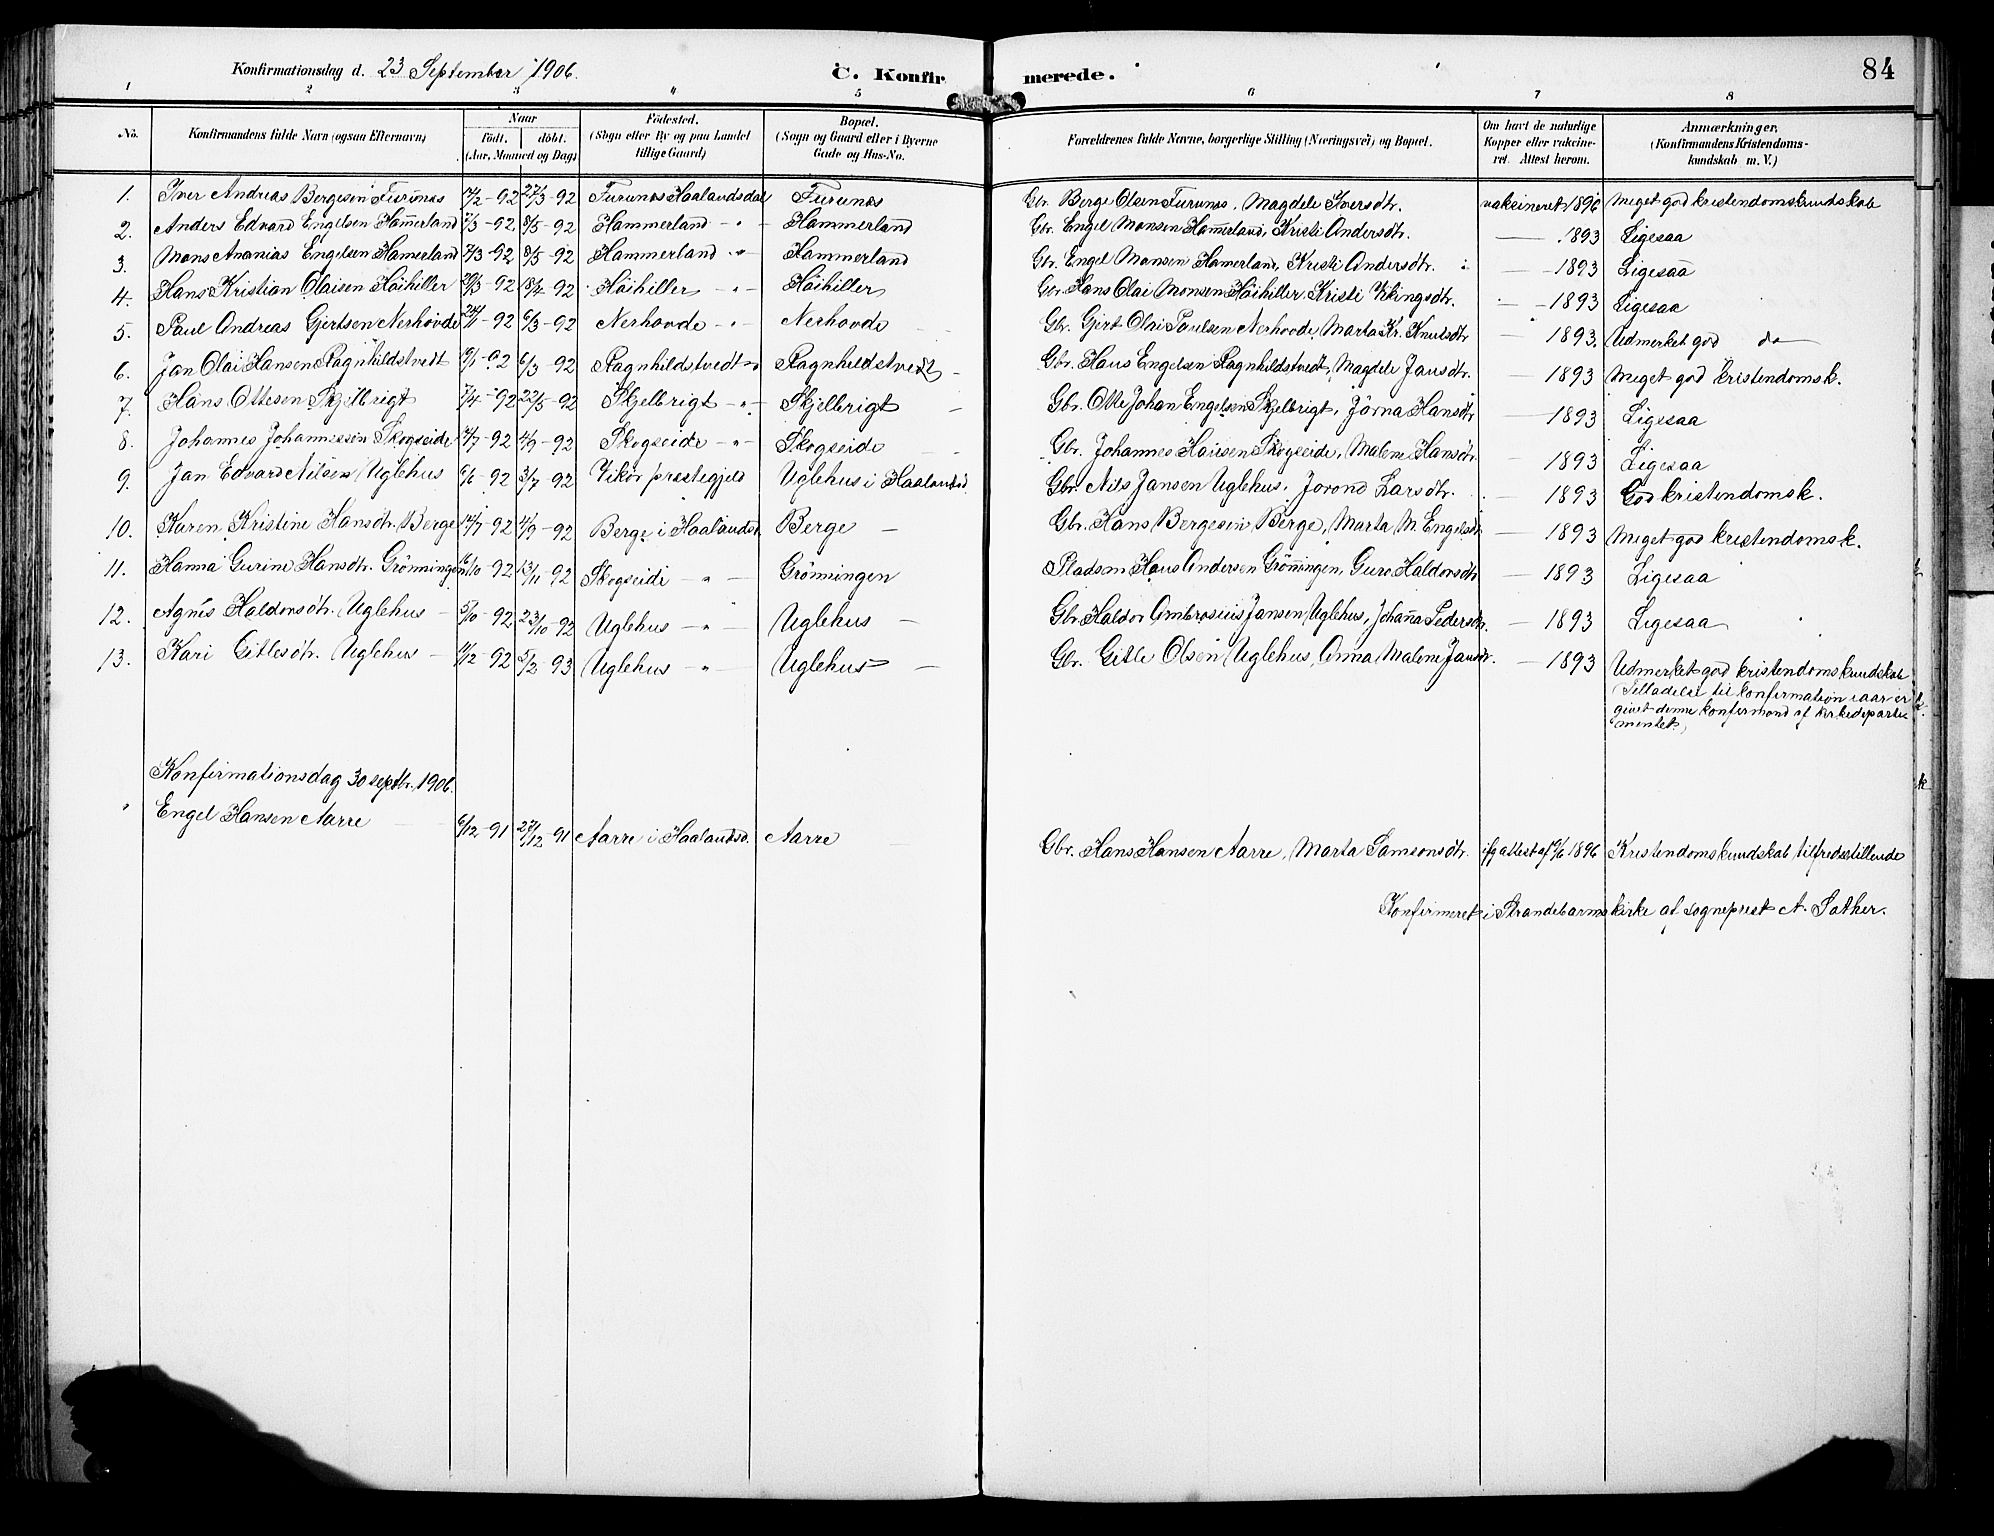 Konfirmationsdag d. 23 September 1906.
C. Konfirmerede.
84
1 2 3 4 5 6 7 8
No.
Konfirmandens fulde Navn (ogsaa Efternavn)
Naar
födt. döbt.
(Aar, Maaned og Dag)
Födested.
(Sogn eller By og paa Landet tillige Gaard)
Bopæl.
(Sogn og Gaard eller i Byerne Gade og Hus-No.
Forældrenes fulde Navne, borgerlige Stilling (Næringsvei) og Bopæl.
Om havt de naturlige Kopper eller vaccineret. Attest herom.
Anmærkninger,
(Konfirmandens Kristendomskundskab m. V.)
1. Iver Andreas Bergesen Furunæs 17/2-92 27/3-92 Furunæs Haalandsdal Furunæs Gbr. Berge Olsen Furunæs, Magdele Iversdtr. vaksineret 1896 Meget god kristendomskundskab
2. Anders Edvard Engelsen Hammerland 7/3-92 8/5-92 Hammerland -"- Hammerland Gbr. Engel Monsen Hammerland, Kristi Andersdtr. — 1893 Ligesaa
3. Mons Ananias Engelsen Hammerland 7/3-92 8/5-92 Hammerland -"- Hammerland Gbr. Engel Monsen Hamerland, Kristi Andersdtr. — 1893 Ligesaa
4. Hans Kristian Olaisen Höihiller 20/3-92 18/4-92 Höihiller -"- Höihiller Gbr. Hans Olai Monsen Höihiller, Kristi Vikingsdtr. — 1893 Ligesaa
5. Paul Andreas Gjertsen Nerhovde 24/1-92 6/3-92 Nerhovde -"- Nerhovde Gbr. Gjert Olai Paulsen Nerhovde, Marta Kr. Knutsdtr — 1893. Udmerket god do
6. Jan Olai Hansen Ragnhildstvedt 19/1-92 6/3-92 Ragnhildstvedt -"- Ragnhildstvedt Gbr. Hans Engelsen Ragnhildstvedt, Magdele Jansdtr. — 1893 Meget god kristendomsk.
7. Hans Ottesen Skjelbrigt 7/4-92 22/5-92 Skjelbrigt -"- Skjelbrigt Gbr. Otte Johan Engelsen Skjelbrigt, Jörna Hansdtr — 1893 Ligesaa
8. Johannes Johannessen Skogseide 14/7-92 4/9-92 Skogseide -"- Skogseide Gbr. Johannes Hansen Skogseide, Malene Hansdtr. — 1893 Ligesaa
9. Jan Edvard Nilsen Uglehus 6/6-92 3/7-92 Vikör præstegjeld Uglehus i Haalandsd. Gbr. Nils Jansen Uglehus, Jorond Larsdtr. — 1893 God kristendomsk.
10. Karen Kristine Hansdtr. Berge 14/7-92 4/9-92 Berge i Haalandsd. Berge Gbr. Hans Bergesen Berge, Marta M. Engelsdtr — 1893 Meget god kristendomsk.
11. Hanna Gurine Hansdtr. Grönningen 16/10-92 13/11-92 Skogseide -"- Grönningen Pladsm. Hans Andersen Grönningen, Guro Haldorsdtr — 1893 Ligesaa
12. Agnis Haldorsdtr. Uglehus 5/10-92 23/10-92 Uglehus -"- Uglehus Gbr. Haldor Ambrosius Jansen Uglehus, Johanna Pedersdtr. — 1893 Ligesaa
13. Kari Gitlesdtr. Uglehus 11/12-92 5/2-93 Uglehus -"- Uglehus Gbr. Gitle Olsen Uglehus, Anna Malene Jansdtr. — 1893 Udmerket god kristendomskundskab
Tilladelse til konfirmation iaar er
givet denne konfirmand af Kirkedeparte
mentet.
Konfirmationsdag 30 septbr. 1906.
" Engel Hansen Aarre 6/12-91 27/12-91 Aarre i Haalandsd. Aarre Gbr. Hans Hansen Aarre, Marta Samsonsdtr. ifg attest af 19/6 1896 Kristendomskundskab tilfredsstillende
Konfirmeret i Strandebarms kirke af sogneprest A. Sather.